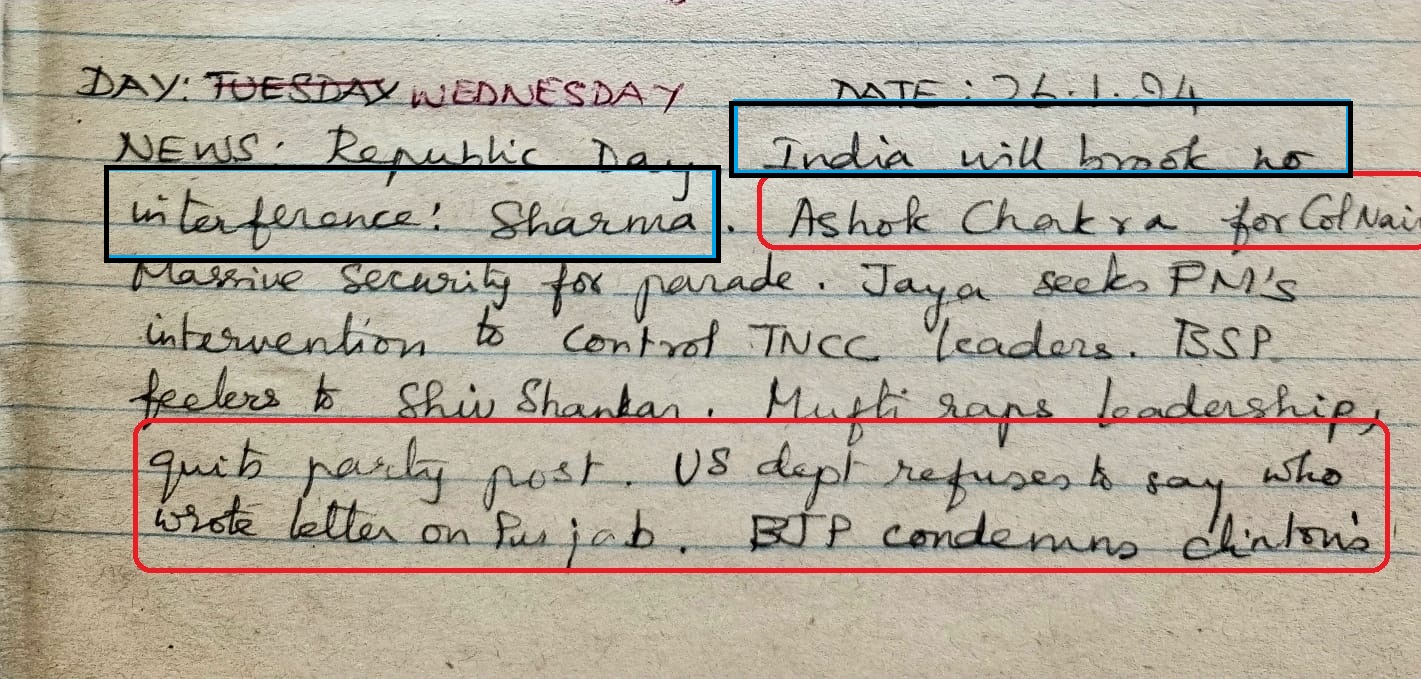 DAY: TUESDAY WEDNESDAY DATE: 26.1.94
NEWS: Republic Day India will brook no
interference: Sharma. Ashok Chakra for Col Nair
Massive Security for parade. Jaya seeks PM's
intervention to control TNCC leaders. BSP
feelers to Shiv Shankar. Mufti raps leadership,
quits party post. US dept refuses to say who
wrote letter on Punjab. BJP condemns clinton's